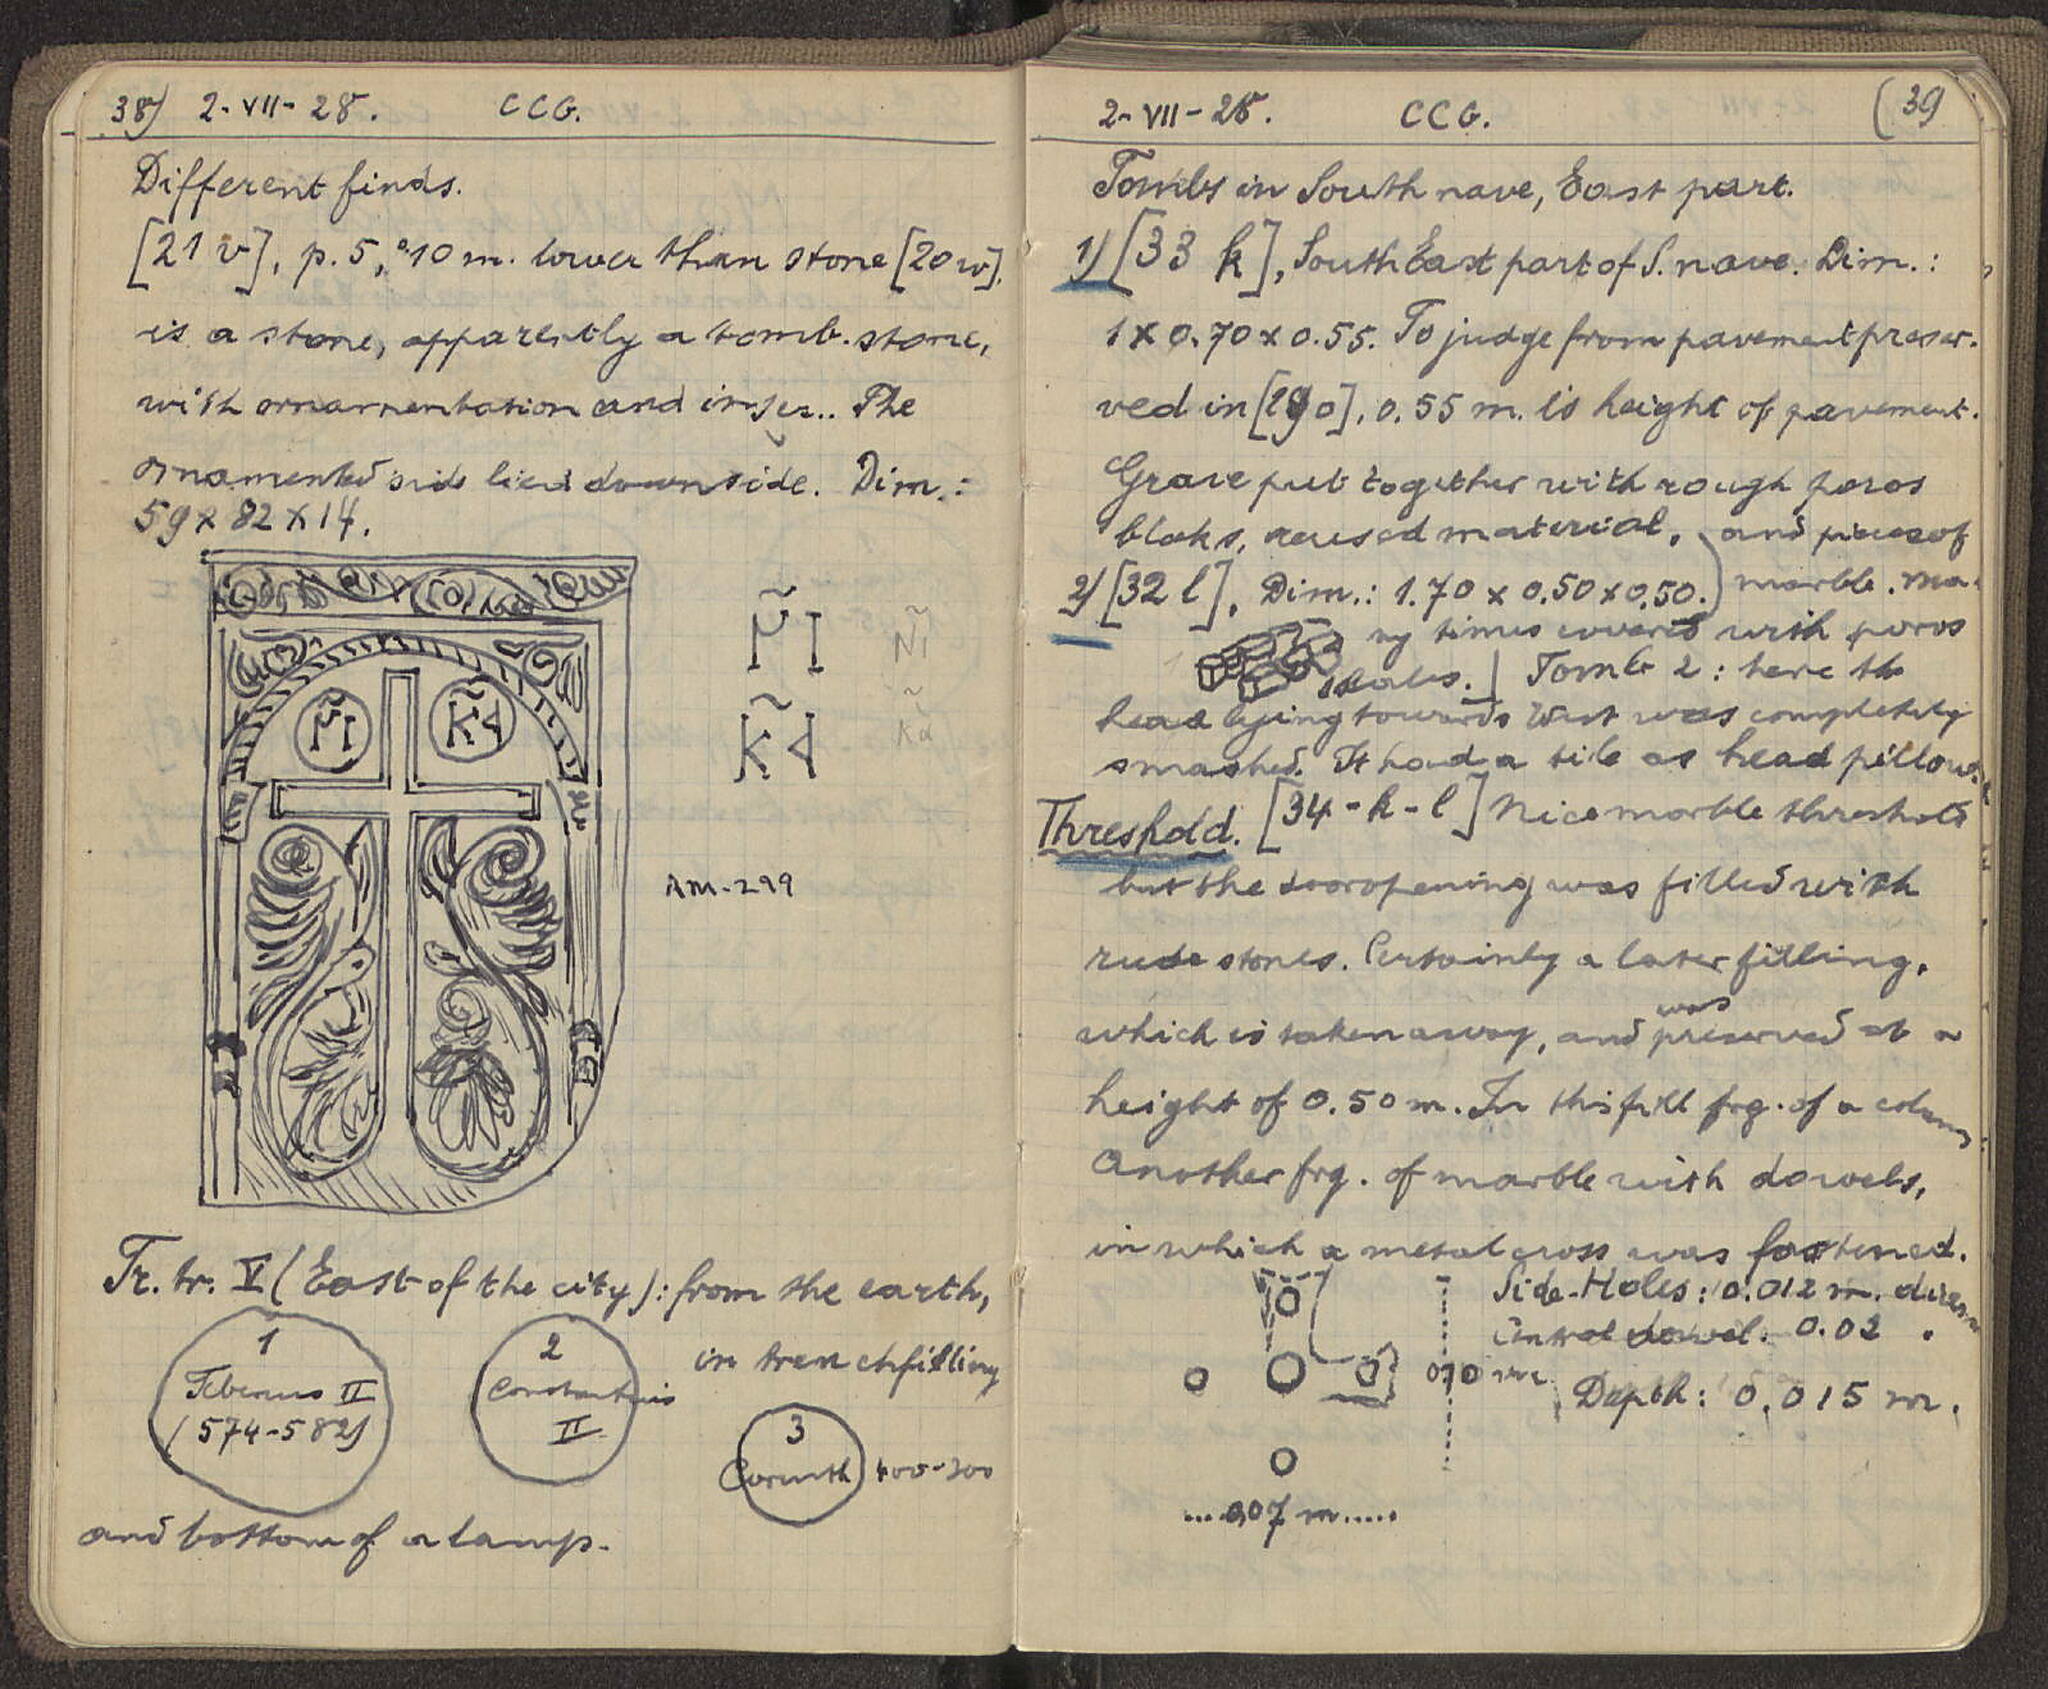 38) 2-VII-28. CCG.
Different finds.
[21 v], p. 5, 0.10 m. lower than stone [20 w],
is a stone, apparently a tomb-stone,
with ornamentation and inscr.. The
ornamented side lied downside. Dim.:
59 x 82 x 14.
M̃I ÑI
K̃A K̃a
M̃I K̃A
AM-299
Tr. tr. V (East of the city): from the earth,
in trenchfilling
1
Tiberius II
(574-582)
2
Constantius
II
3
Corinth 400-300
and bottom of a lamp.
2-VII-28. CCG. (39
Tombs in South nave, East part.
1) [33 k], South East part of S. nave. Dim.:
1 x 0.70 x 0.55. To judge from pavement preser-
ved in [29 o], 0.55 m. is height of pavement.
Grave put together with rough poros
bloks, reused material, and pieces of
2) [32 l], Dim.: 1.70 x 0.50 x 0.50. marble. Ma-
ny times covered with poros
slabs. Tomb 2: here the
head lying towards West was completely
smashed. It had a tile as head pillow.
Threshold. [34-k-l] Nice marble threshold
but the dooropening was filled with
rude stones. Certainly a later filling,
which is taken away, and was preserved at a
height of 0.50 m. In this fill frg. of a column
Another frg. of marble with dowels,
in which a metal cross was fastened.
Side-Holes: 0.012 m.
Central dowel. 0.02
0.10 m.
Depth: 0.015 m.
... 0.07 m.....